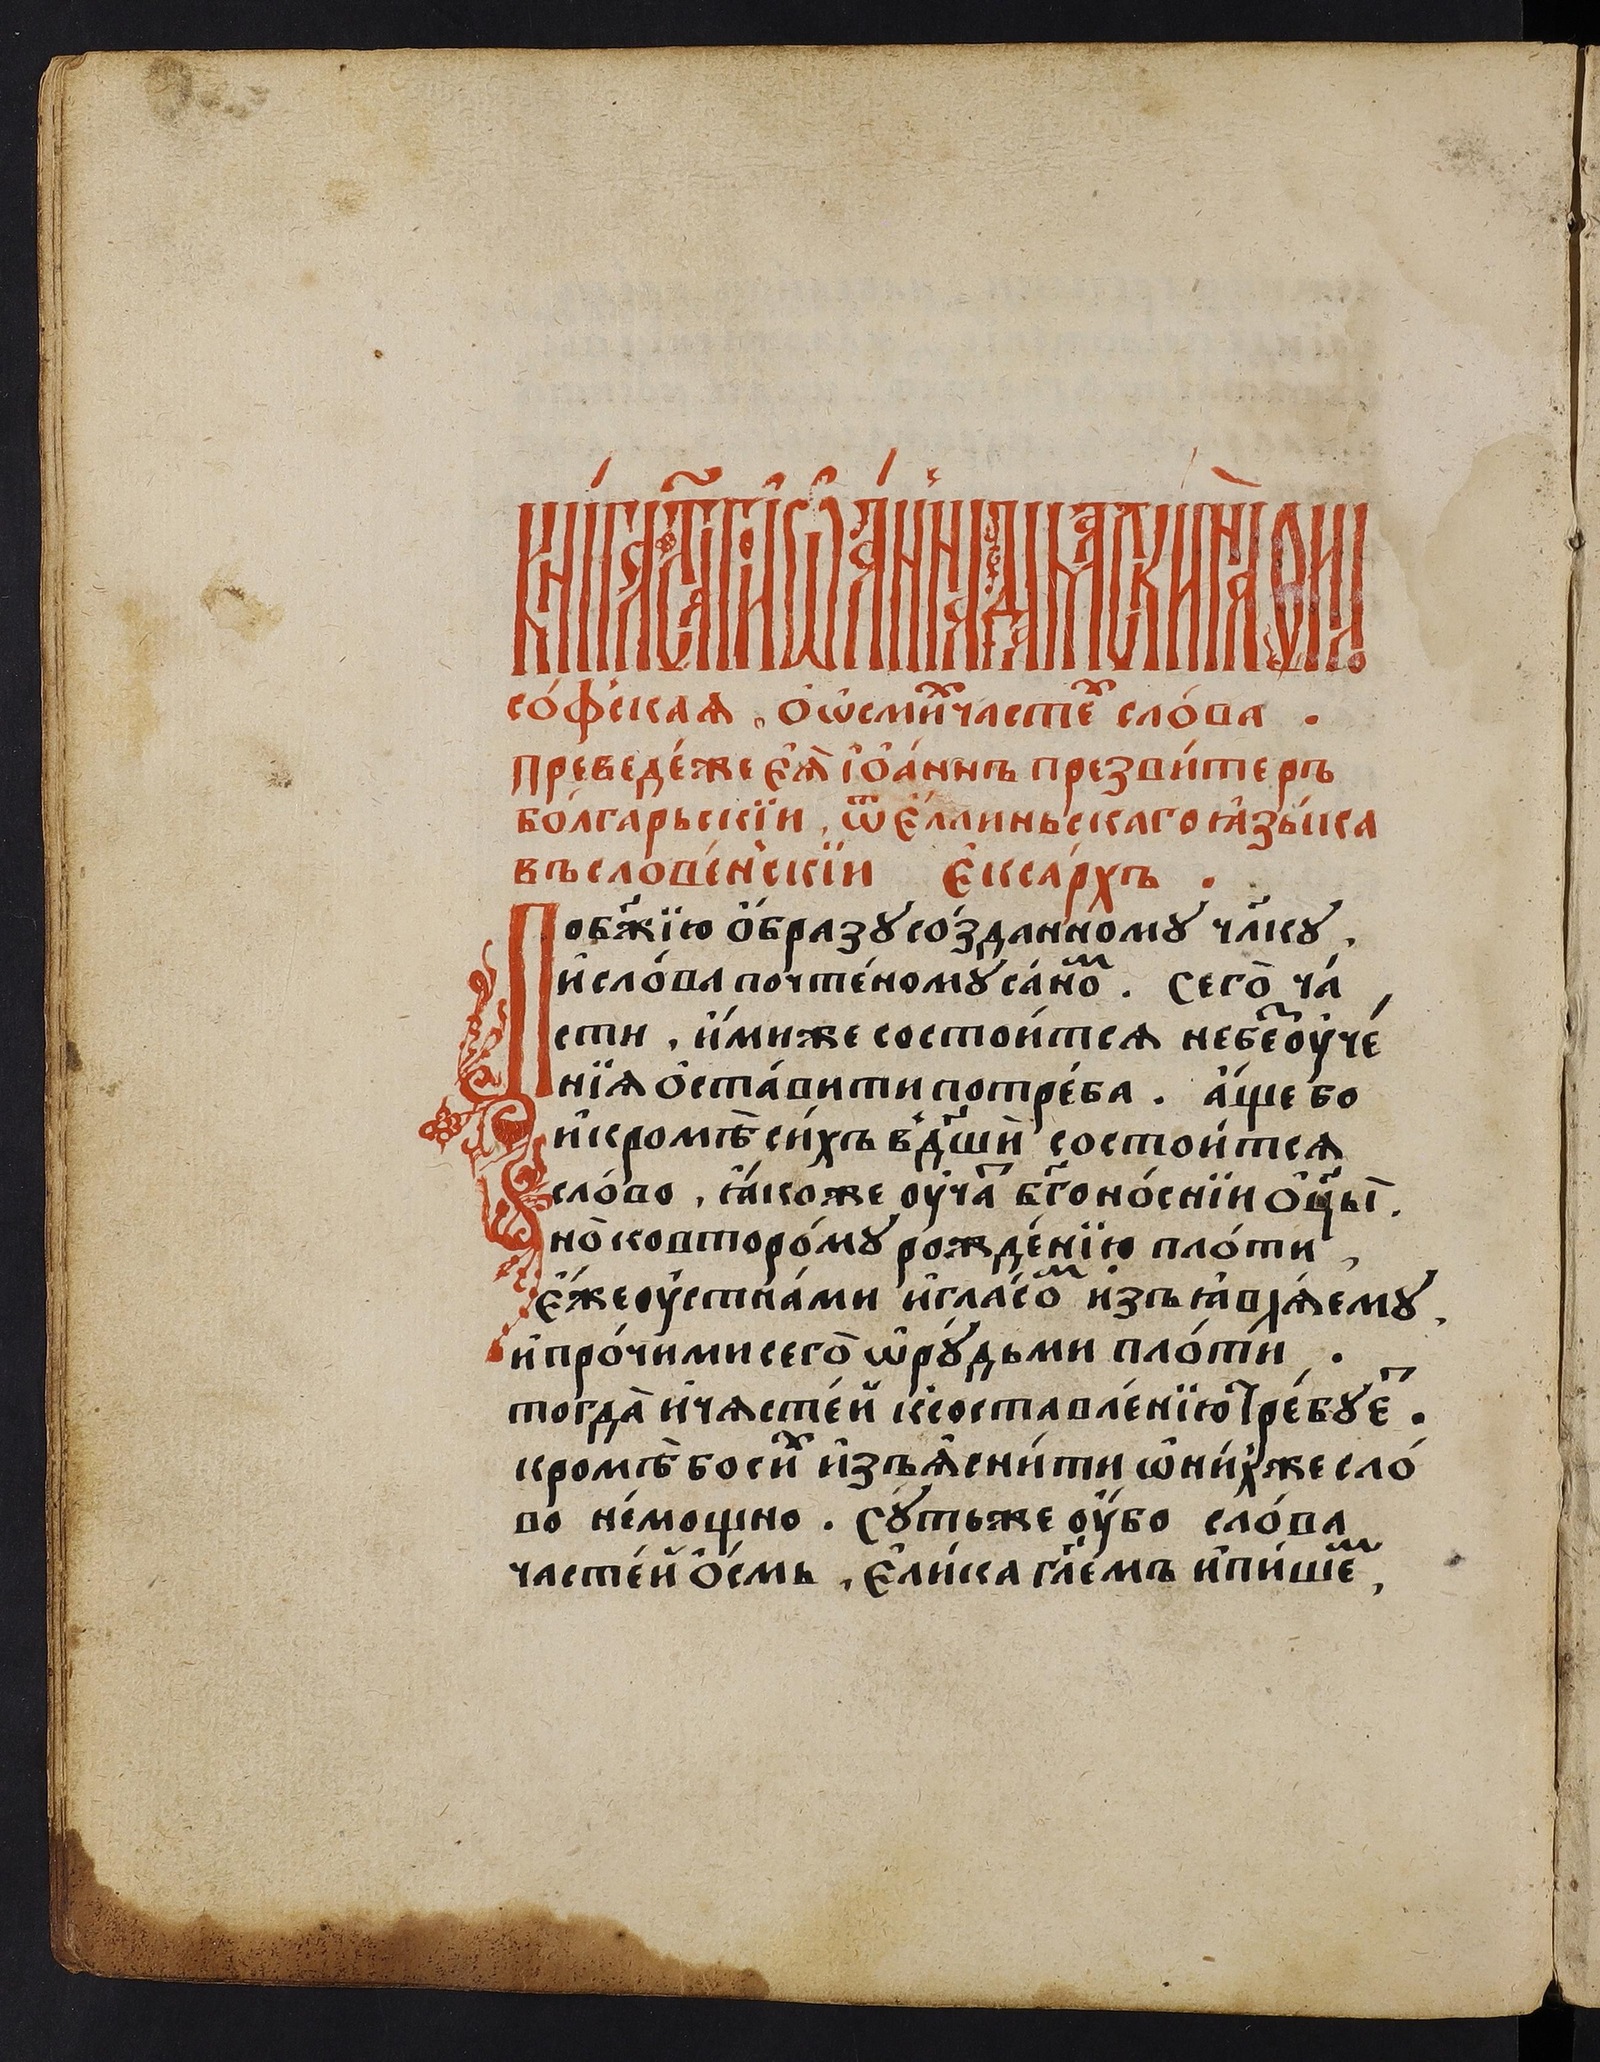 кни́га ст҃а́гѡ і҆ѡа́нна дамаскина̀ фило
со́фскаѧ , о҆ ѻ҆сми́хъ часте́хъ сло́ва .
преведе́ же є҆ѧ̀ і҆ѻа́ннъ презви́теръ
бо́лгарьскїи , ѿ є҆́ллиньскаго ꙗ҆зы́ка
въ слове́н̾скїи є҆кса́рхъ .
По бж҃їю ѻ҆́бразꙋ со́зданномꙋ чл҃кꙋ ,
и҆ сло́ва почте́номꙋ са́но̑ⷨ . Сего̀ ча́
сти , и҆́миже состои́тсѧ небеⷥ оу҆че́
нїѧ ѻ҆ста́вити потре́ба . а҆́ще бо
и҆ кромѣ̀ си́хъ в̾ дш҃ѝ состои́тсѧ
сло́во , ꙗ҆́коже оу҆ча́ⷮ бг҃оно́снїи ѻ҆ц҃ы̀ .
но̀ ко второ́мꙋ рожде́нїю пло́ти ,
є҆́же оу҆стна́ми и҆ гла́соⷨ и҆зъꙗвлѧ́емꙋ ,
и҆ про́чими сего̀ ѡ҆рꙋ́дьми пло́ти .
тогда̀ и҆ часте́й к̾ составле́нїю тре́бꙋеⷮ .
кромѣ̀ бо си́ⷯ и҆зъѧсни́ти ѡ҆ ни́хже сло́
во не́мощно . Сꙋ́ть же оу҆́бо сло́ва
часте́й ѻ҆́смь , є҆ли́ка гл҃емъ и҆ пи́шеⷨ ,